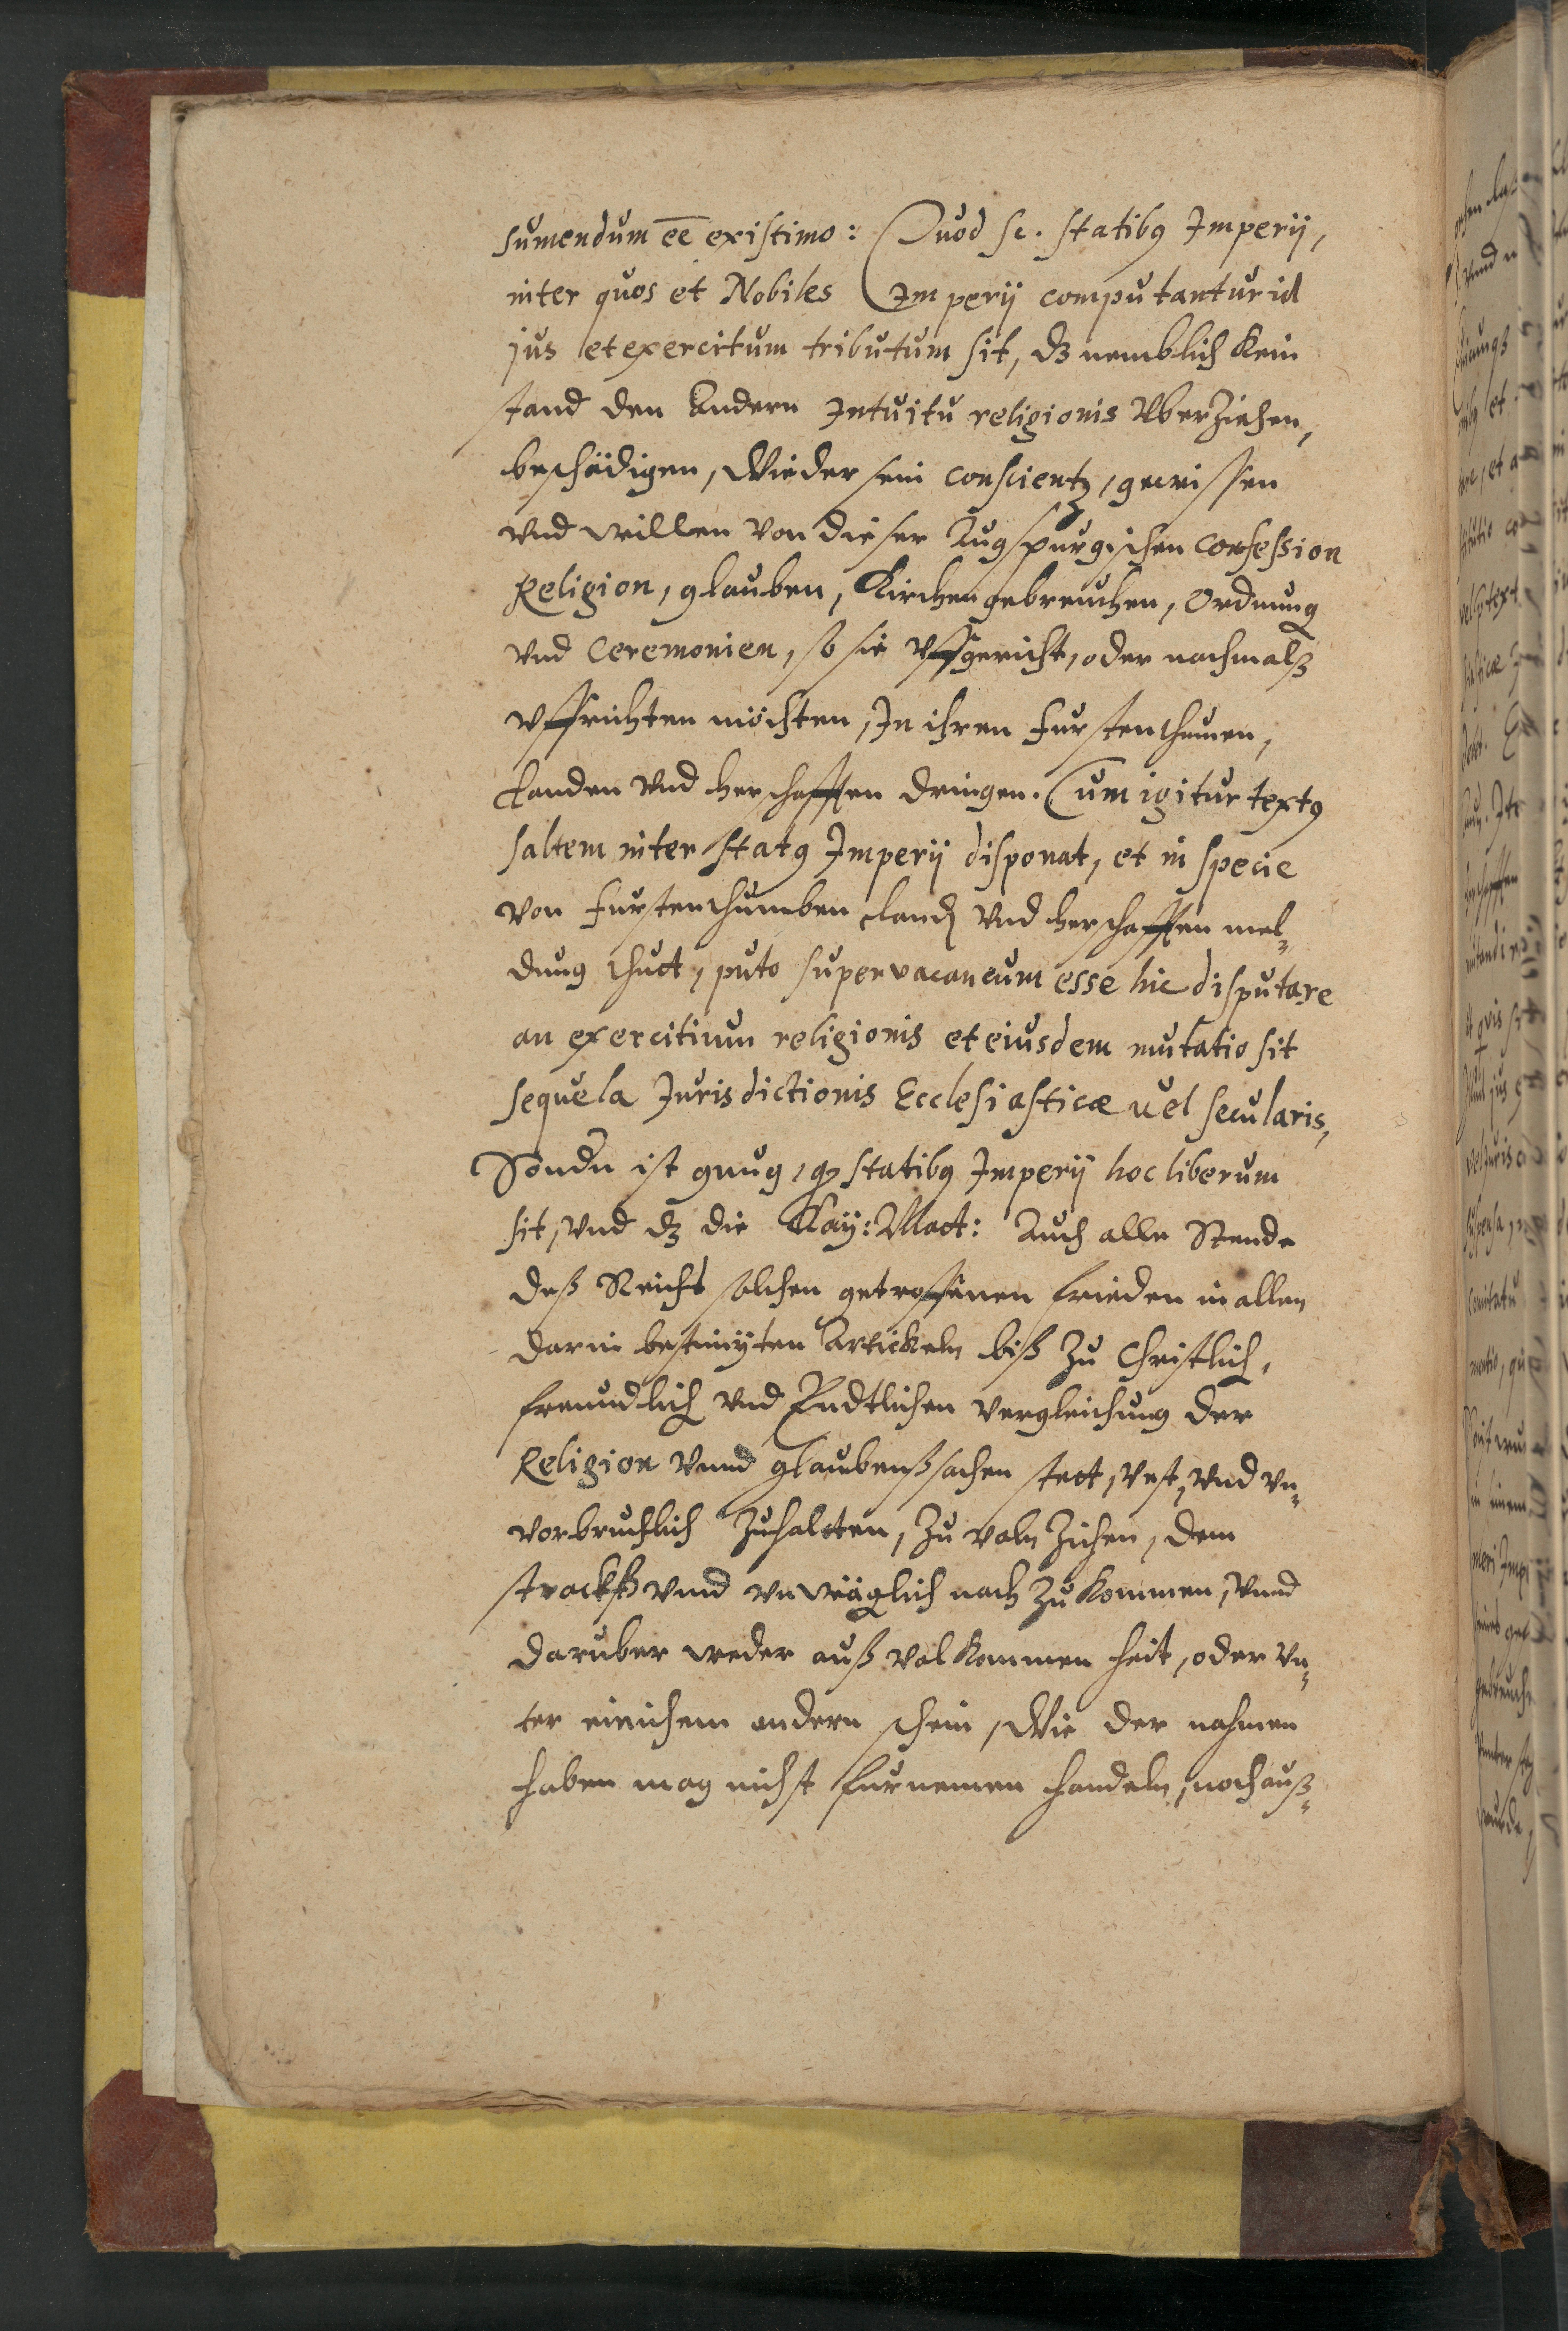 sumendum ēē existimo: Quod sc. statibꝰ Imperij,
inter quos et Nobiles Imperij computantur id
jus et exercitum tributum sit, dz nemblich kein
stand den Andern Intuitu religionis vberziehen,
beschädigen, Wieder sein conscientz, gewissen
vnd willen von dieser Augspurgischen Confession
Religion, glauben, Kirchengebreuchen, Ordnung
vnd Ceremonien, so sie vffgericht, oder nachmalß
vffrichten möchten, In ihren Furstenthumen,
Landen vnd Herschafften dringen. Cum igitur textꝰ
saltem inter statꝰ Imperij disponat, et in specie
von Furstenthumben Land vnd Herschafften mel-
dung thuet, puto supervacaneum esse hic disputare
an exercitium religionis et eiusdem mutatio sit
sequela Jurisdictionis Ecclesiasticæ uel secularis,
Sondn ist gnug, qꝫ statibꝰ Imperij hoc liberum
sit, vnd dz die Kay: Matt: Auch alle Stende
deß Reichs solchen getroffenen frieden in allen
darin bestimpten Artickeln biß zu Christlich,
freundlich vnd Endtlichen vergleichung der
Religion vnnd glaubenßsachen stett, vest, vnd vn-
vorbruchlich zuhaltten, zu voln ziehen, dem
stracks vnnd vnweiglich nach zu kommen, vnnd
daruber weder auß volkommenheit, oder vn-
ter einichem andern schein, Wie der nahmen
haben mag nichst furnemen handeln, noch auß-